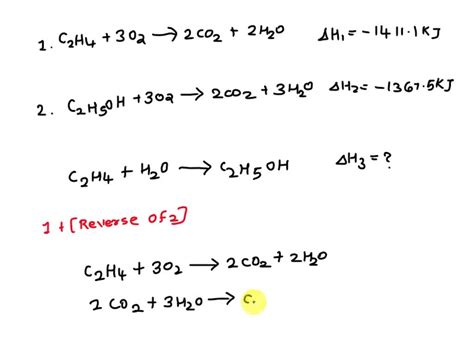 1. C₂H₄ + 3O₂ → 2CO₂ + 2H₂O ΔH₁ = -1411.1KJ
2. C₂H₅OH + 3O₂ → 2CO₂ + 3H₂O ΔH₂ = -1367.5KJ
C₂H₄ + H₂O → C₂H₅OH ΔH₃ = ?
1 + [Reverse of 2]
C₂H₄ + 3O₂ → 2CO₂ + 2H₂O
2CO₂ + 3H₂O → C.